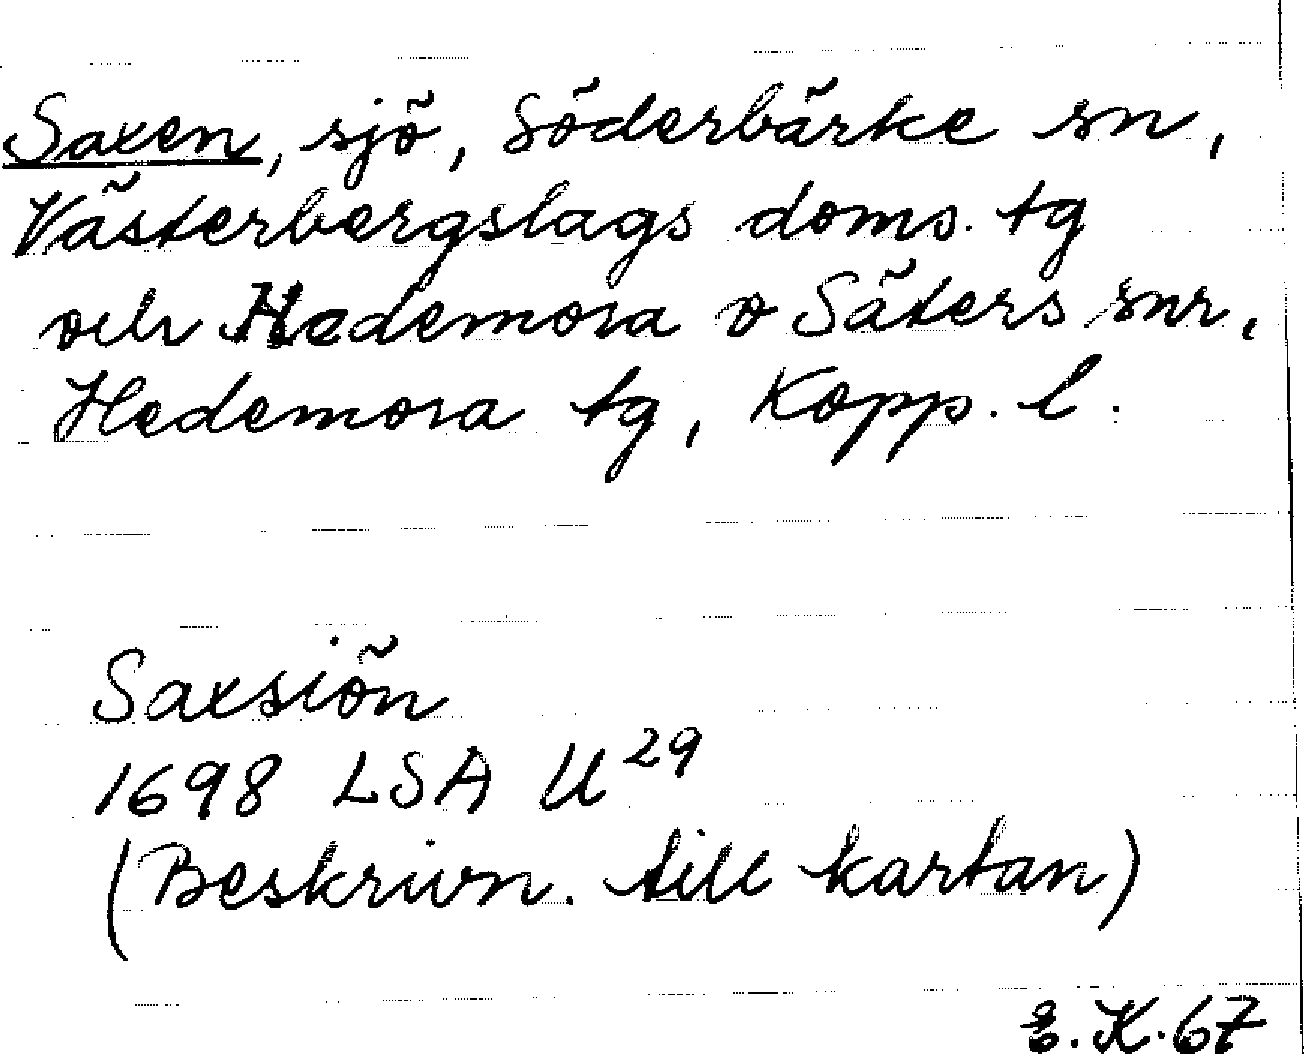 Saxen, sjö, Söderbärke sn,
Västerbergslags doms. tg
och Hedemora o Säters snr,
Hedemora tg, Kopp. l.
Saxsiön
1698 LSA U29
(Beskrivn. till kartan)
E.K.67